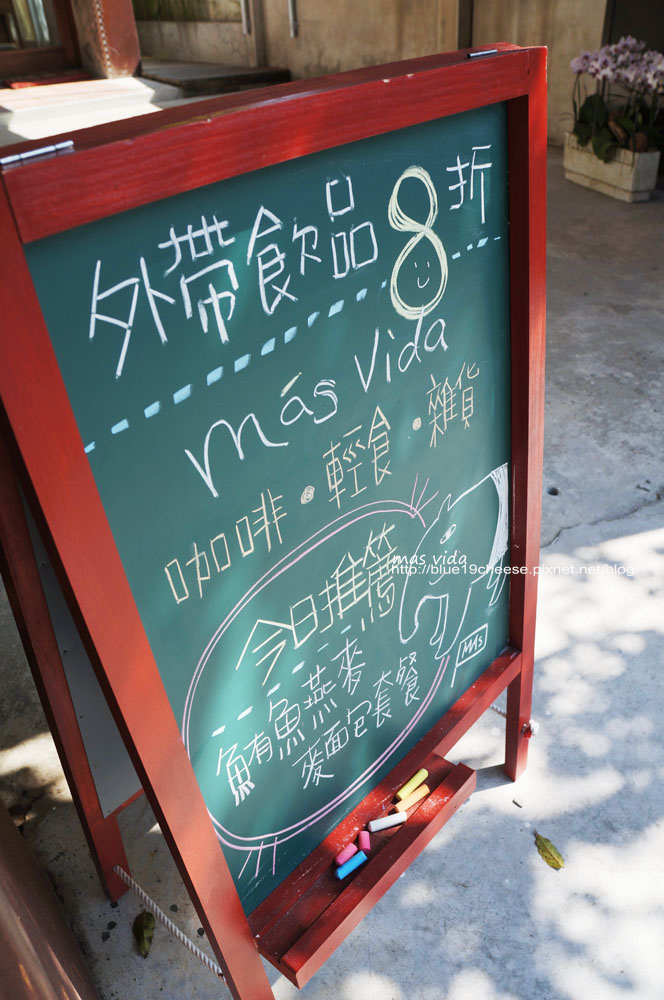 外帶飲品8折
más vida
咖啡·輕食·雜貨
今日推薦
鮪魚燕麥
麥面包套餐
MÁS
mas vida
http://blue19cheese.pixnet.net/blog